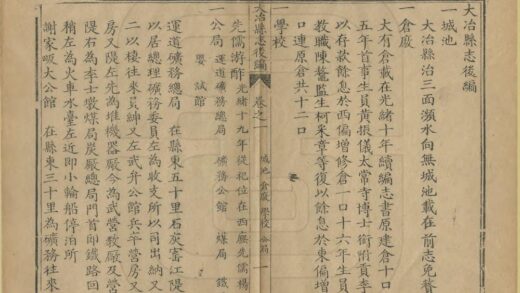 大冶縣志後編
一城池
大冶縣治三面瀕水向無城池載在前志免贅
一倉廒
大有倉載在光緒十年續編志書原建倉十口
五年首事生員黃振儀太常寺博士銜附貢李
以存款餘息於西偏增修倉一口十六年生員
教職陳鰲監生柯采章等復以餘息於東偏增
口連原倉共十二口
一學校
大冶縣志後編 卷之一 城池 倉廒 學校 公局 一
先儒游酢 光緒十九年從祀位在西廡先儒楊
一公局 運道礦務總局 礦務公館 煤局 鐵
試館
運道礦務總局 在縣東五十里石灰窰江隄
以居總理礦務委員左為收支所以司出納又
二以棲往來員紳又左武弁公館兵弁營房又
房又隄左先為堆機器厰今為武營教厰及營
隄右為李士墩煤局炭厰總局門首卽鐵路回
稍左為火車水臺左近卽小輪船停泊所
謝家畈大公館 在縣東三十里為礦務往來